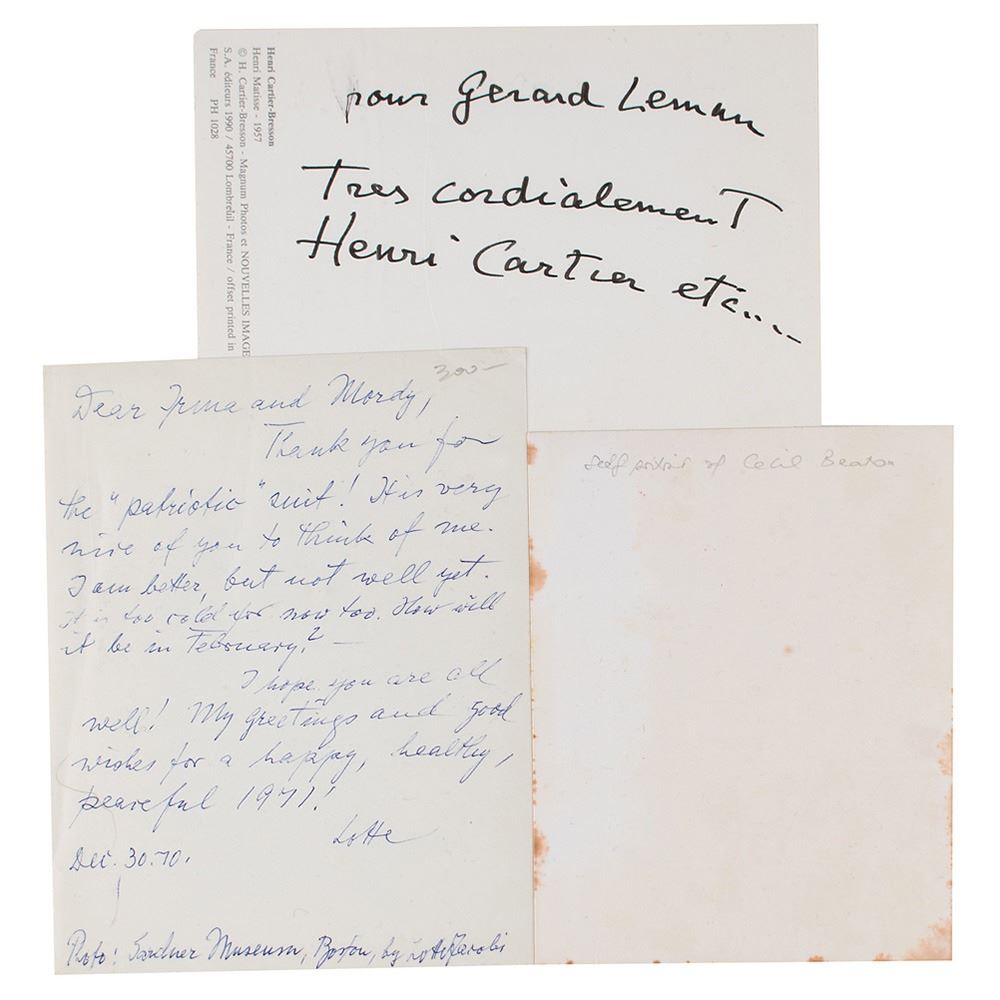 Henri Cartier-Bresson
Henri Matisse - 1957
© H. Cartier-Bresson - Magnum Photos et NOUVELLES IMAGE
S.A. éditeurs 1990 / 45700 Lombreuil - France / offset printed in
France PH 1028
pour Gerard Leman
Tres cordialement
Henri Cartier etc...
300-
Dear Irma and Mordy,
Thank you for
the "patriotic" suit! It is very
nice of you to think of me.
I am better, but not well yet.
It is too cold for now too. How will
it be in February? -
I hope you are all
well! My greetings and good
wishes for a happy, healthy,
peaceful 1971!
Lotte
Dec. 30.70.
Photo: Gardner Museum, Boston, by Lotte Jacobi
self portrait of Cecil Beaton